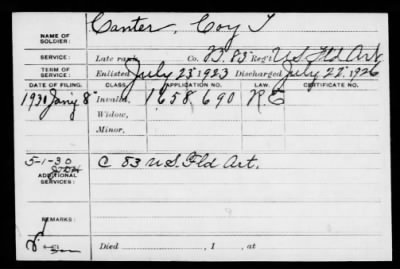 Canter, Coy T
NAME OF SOLDIER:
SERVICE: Late rank, Co. D. 83 Reg't U S Fld Art.
TERM OF SERVICE: Enlisted July 23 1923 Discharged July 22, 1926
DATE OF FILING. CLASS. APPLICATION NO. LAW. CERTIFICATE NO.
1930 Jan'y 8 Invalid, 1658,690 R E
Widow,
Minor,
5-1-30 C 83 U.S. Fld Art.
ADDITIONAL SERVICES:
REMARKS:
Died , 1 , at